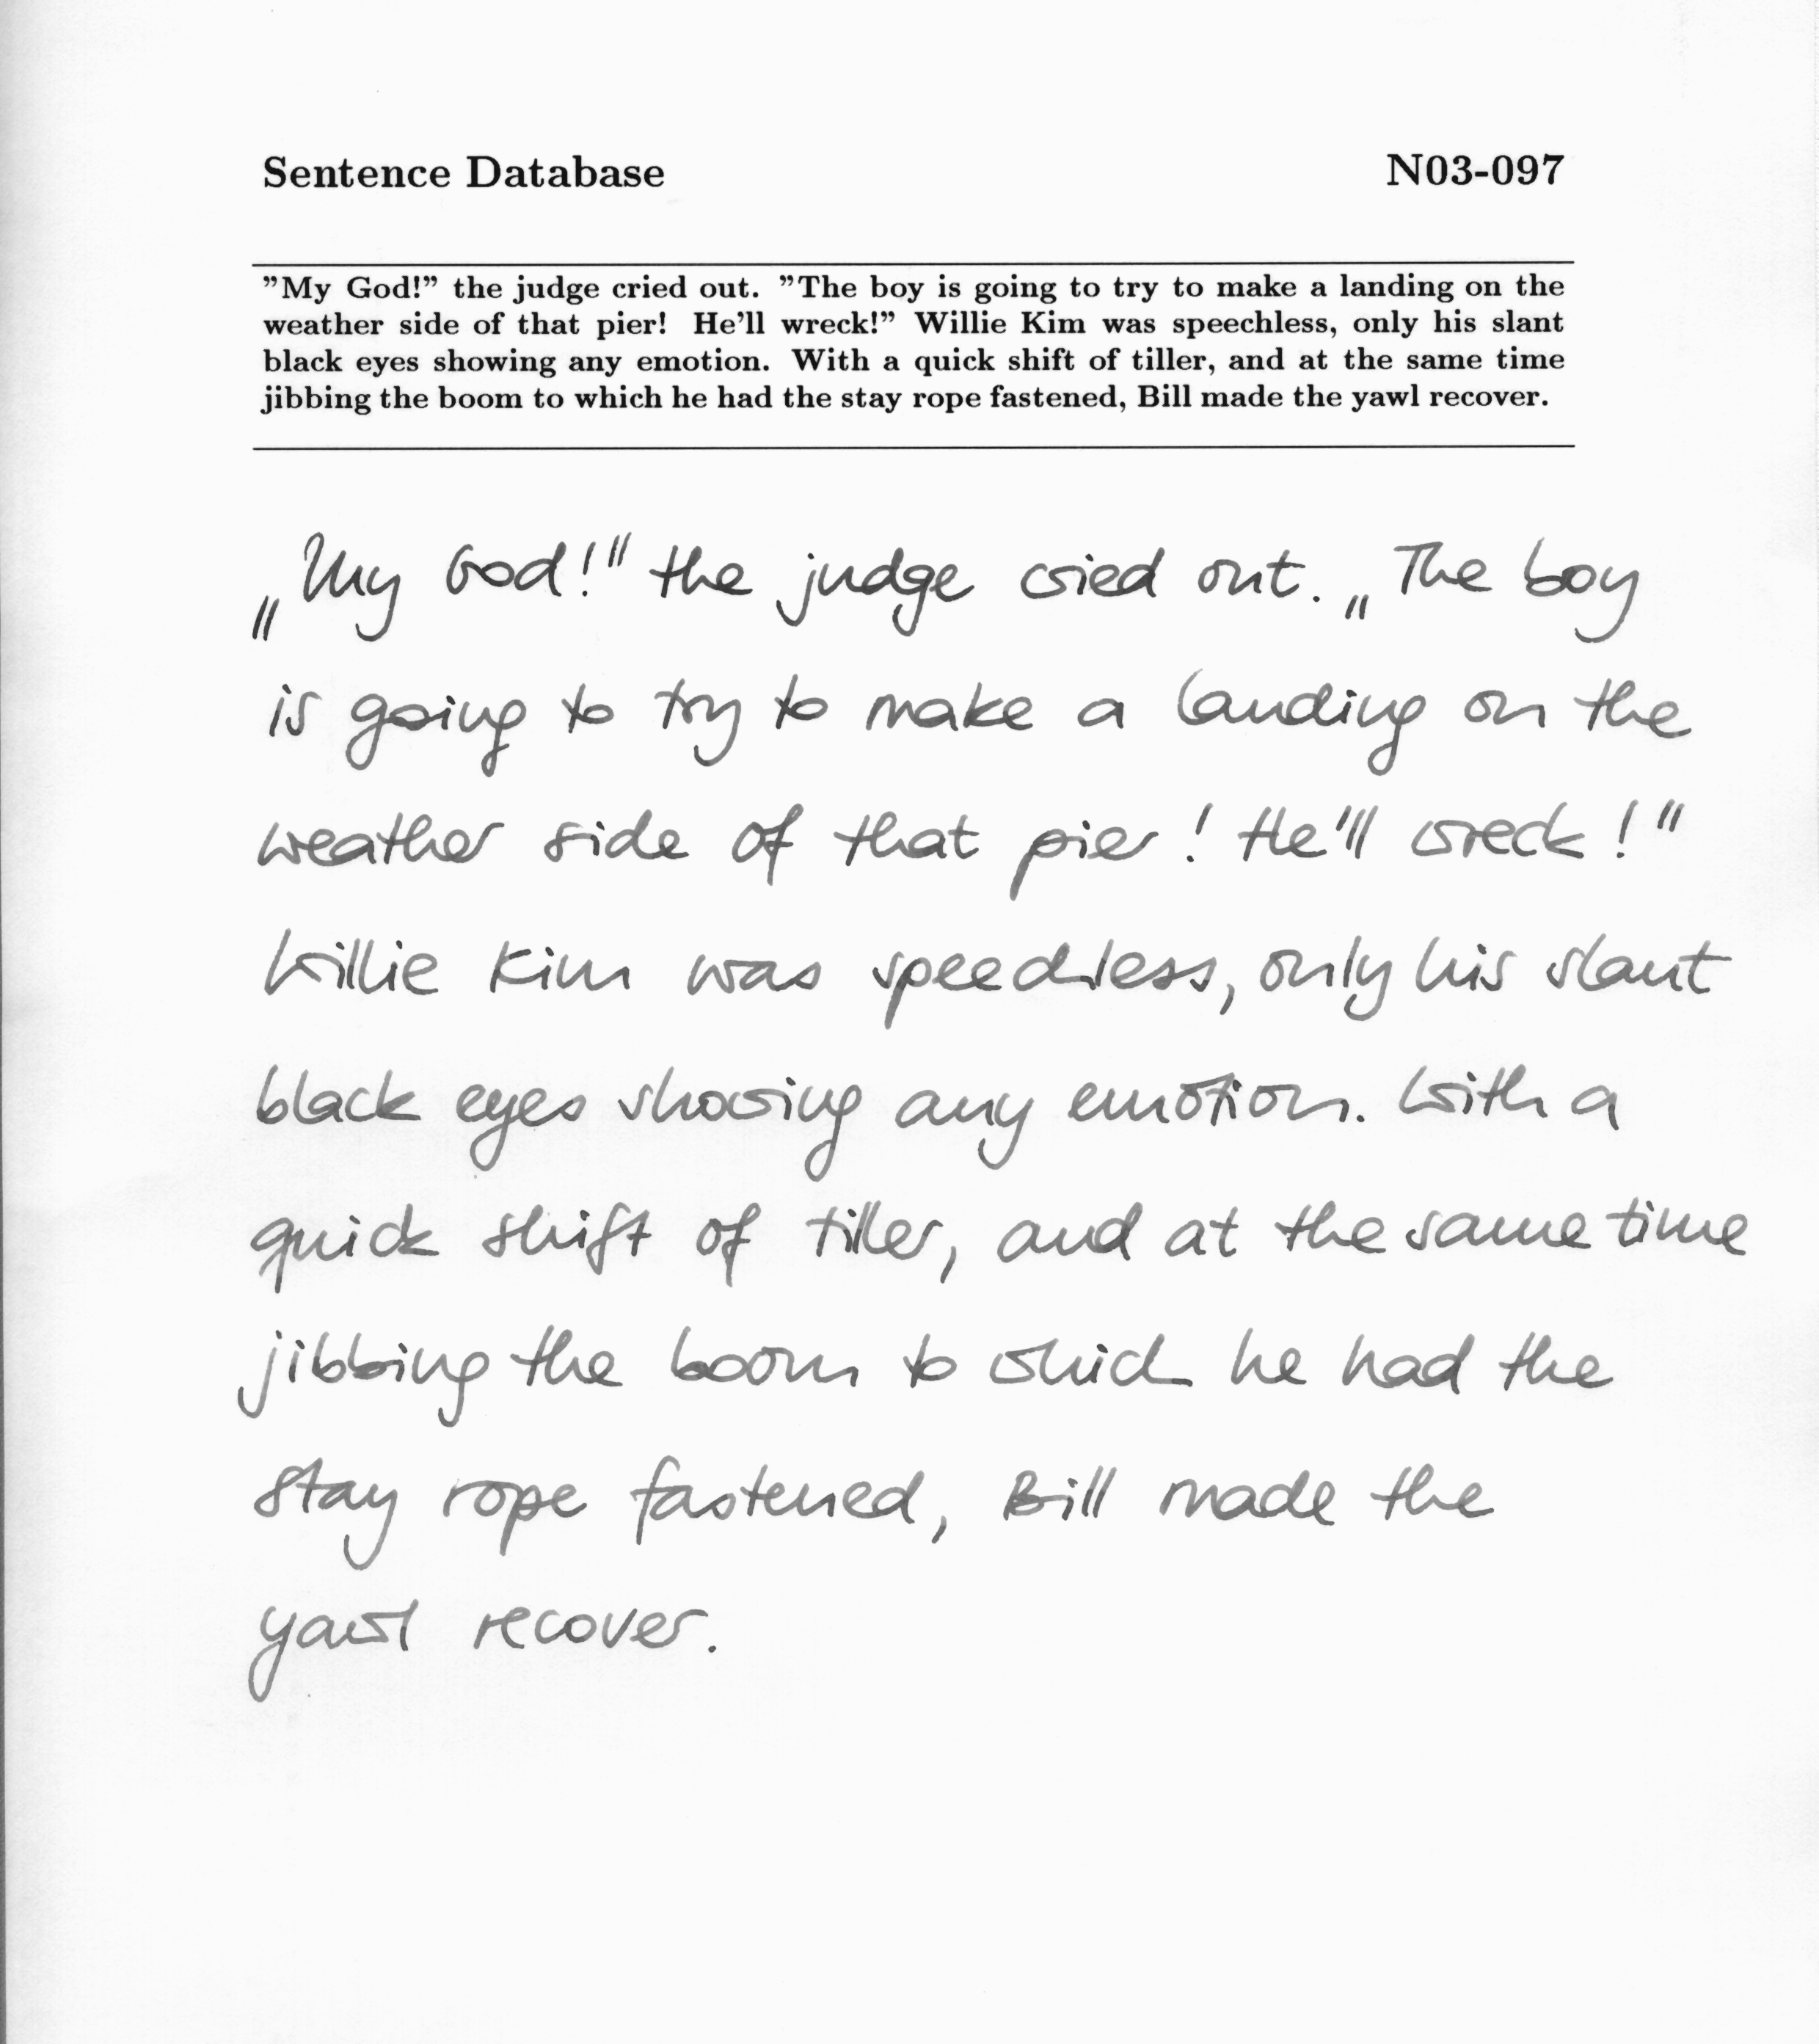 Sentence Database N03-097
”My God!” the judge cried out. ”The boy is going to try to make a landing on the
weather side of that pier! He’ll wreck!” Willie Kim was speechless, only his slant
black eyes showing any emotion. With a quick shift of tiller, and at the same time
jibbing the boom to which he had the stay rope fastened, Bill made the yawl recover.
„My God!" the judge cried out. „The boy
is going to try to make a landing on the
weather side of that pier! He'll wreck!"
Willie Kim was speechless, only his slant
black eyes showing any emotion. With a
quick shift of tiller, and at the same time
jibbing the boom to which he had the
stay rope fastened, Bill made the
yawl recover.